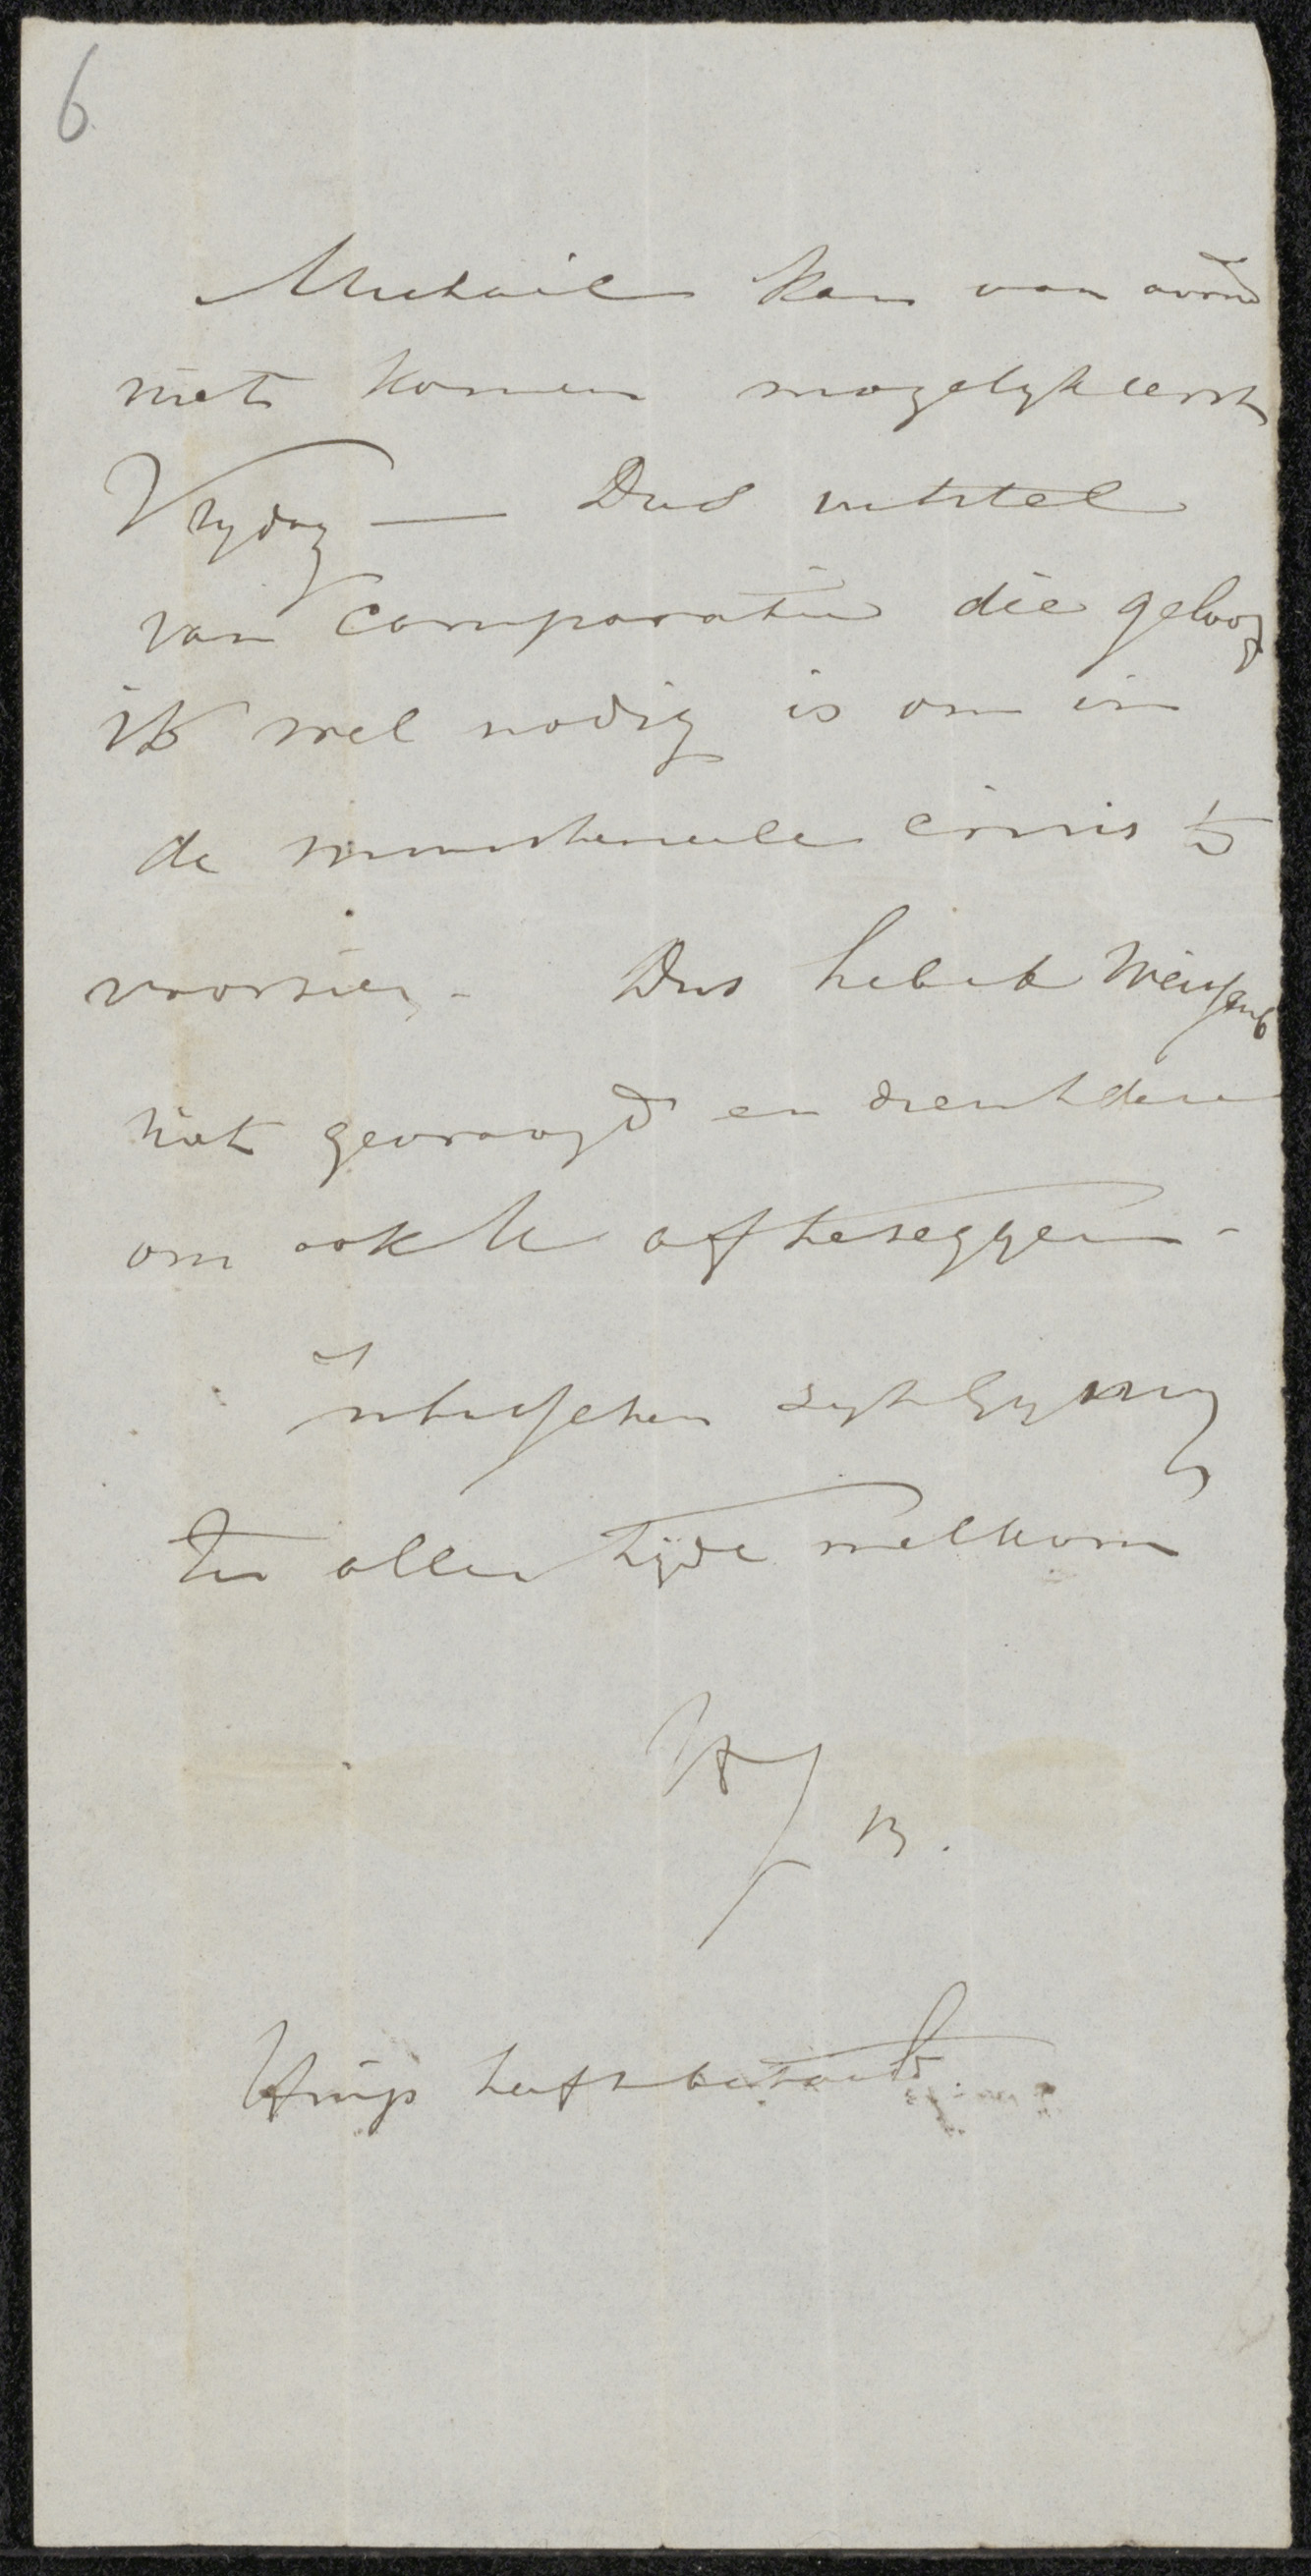 6
Michaël kan van avond
niet komen mogelyk eerst
Vrydag — Dus uitstel
van comparatie die geloof
ik wel nodig is om in
de ministerieele crisis te
voorzien. Dus heb ik
niet gevraagd en dient deze
om ook U afteseggen -
Intusschen zyt gy my
ten allen tijde welkom
B.